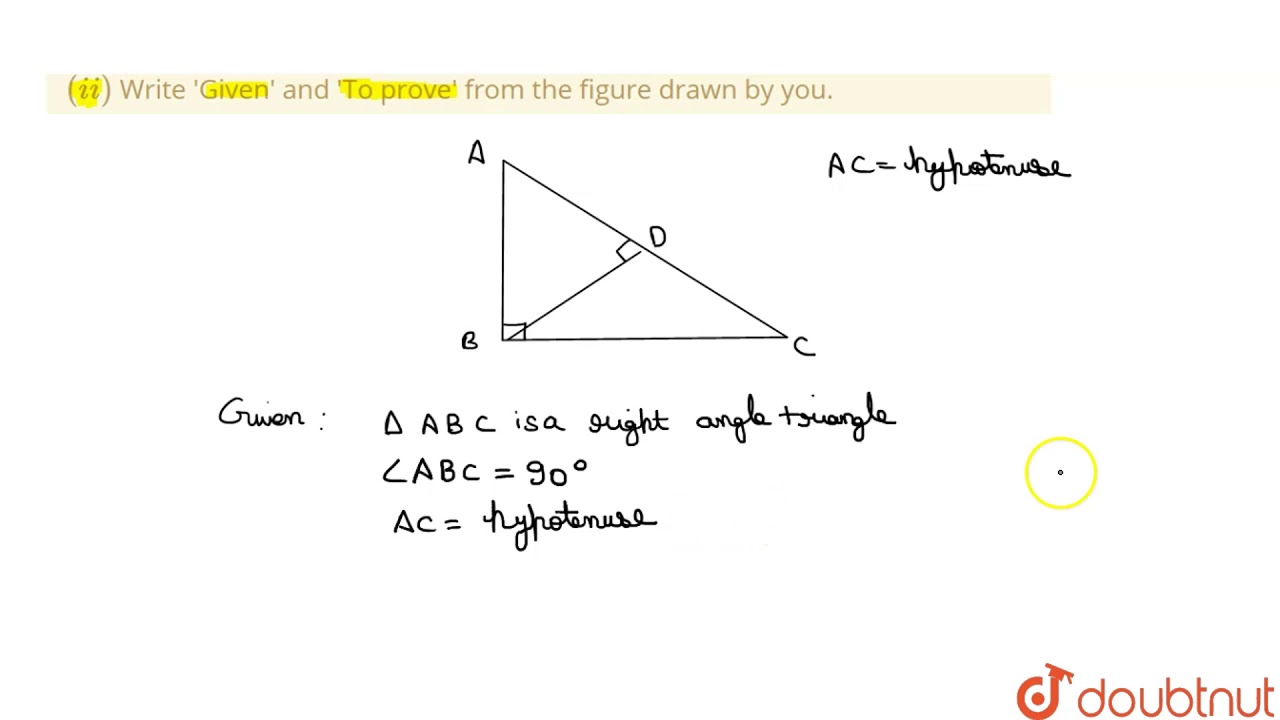 (ii) Write 'Given' and 'To prove' from the figure drawn by you.
A
AC = hypotenuse
D
B
C
Given : Δ ABC is a right angle triangle
∠ABC = 90°
AC = hypotenuse
doubtnut